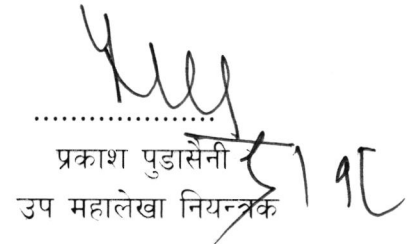 ....................
प्रकाश पुडासैनी
उप महालेखा नियन्त्रक